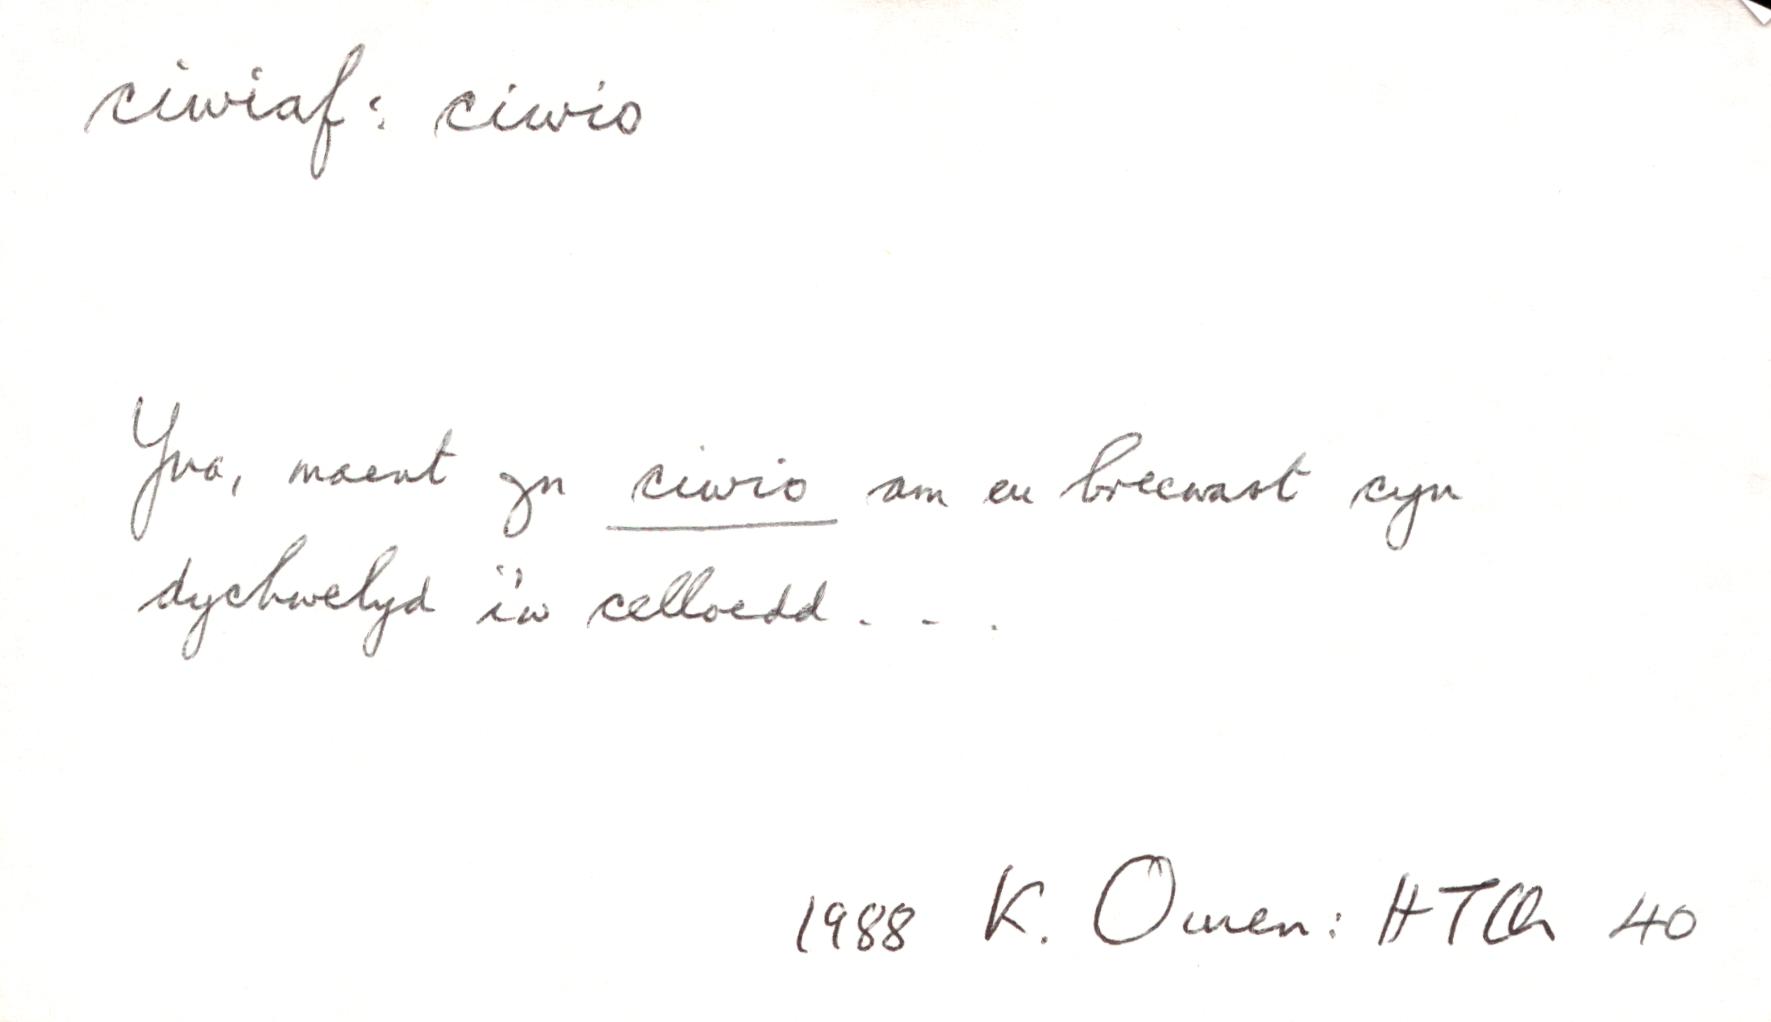 ciwiaf: ciwio
Yna, maent yn ciwio am eu brecwast cyn
dychwelyd i'w celloedd . . .
1988 K. Owen: HTCh 40